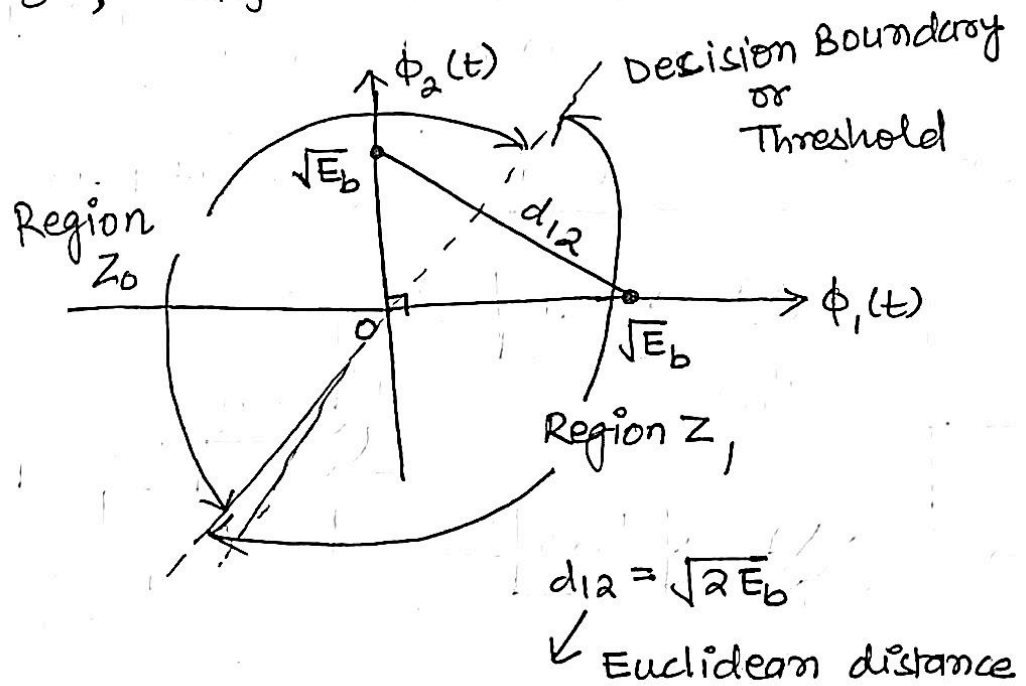 ϕ₂(t)
Decision Boundary
or
Threshold
√E_b
d₁₂
Region
Z₀
ϕ₁(t)
0
√E_b
Region Z₁
d₁₂ = √2E_b
Euclidean distance